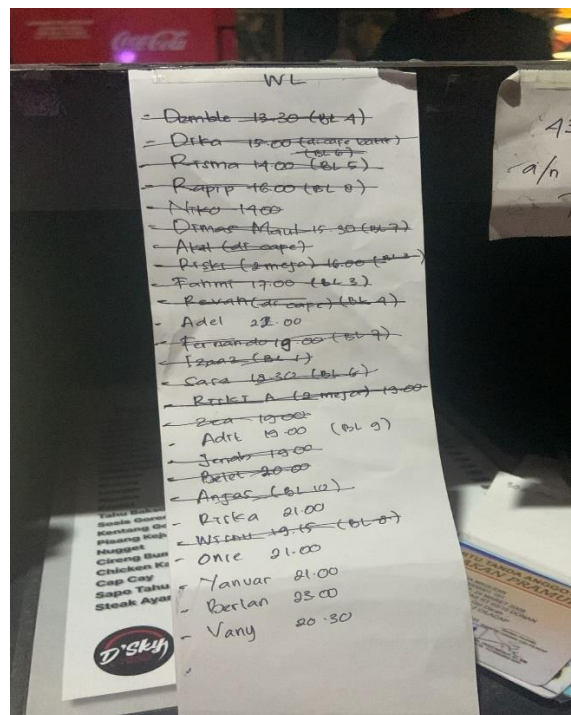 Coca-Cola
WL
- Damble 13.30 (BL 4)
- Dika 15.00 (di cafe
(BL 6)
- Risma 14.00 (BL 5)
- Rapip 16.00 (BL 8)
- Niko 14.00
- Dimas Maul 15.30 (BL 7)
- Akal (di cape)
- Riski (2 meja) 16.00
- Fahmi 17.00 (BL 3)
- Revan (di cape) (BL 4)
- Adel 21.00
- Fernando 19.00 (BL 7)
(BL 1)
- Sasa 18.30 (BL 6)
- Riski A (2 meja) 19.00
- Zea 19.00
- Adit 19.00 (BL 9)
- Jenab 19.00
- Belet 20.00
- Angas (BL 10)
- Riska 21.00
- Wisnu 19.15 (BL 8)
- Onie 21.00
- Yanuar 21.00
- Berlan 23.00
- Vany 20.30
-
a/n
Tahu Bakso
Sosis Gore
Kentang Go
Pisang Kej
Nugget
Cireng Bua
Chicken Ka
Cap Cay
Sapo Tahu
Steak Aya
D'Sky
TU TANDA ANGGO
AN PRAMU